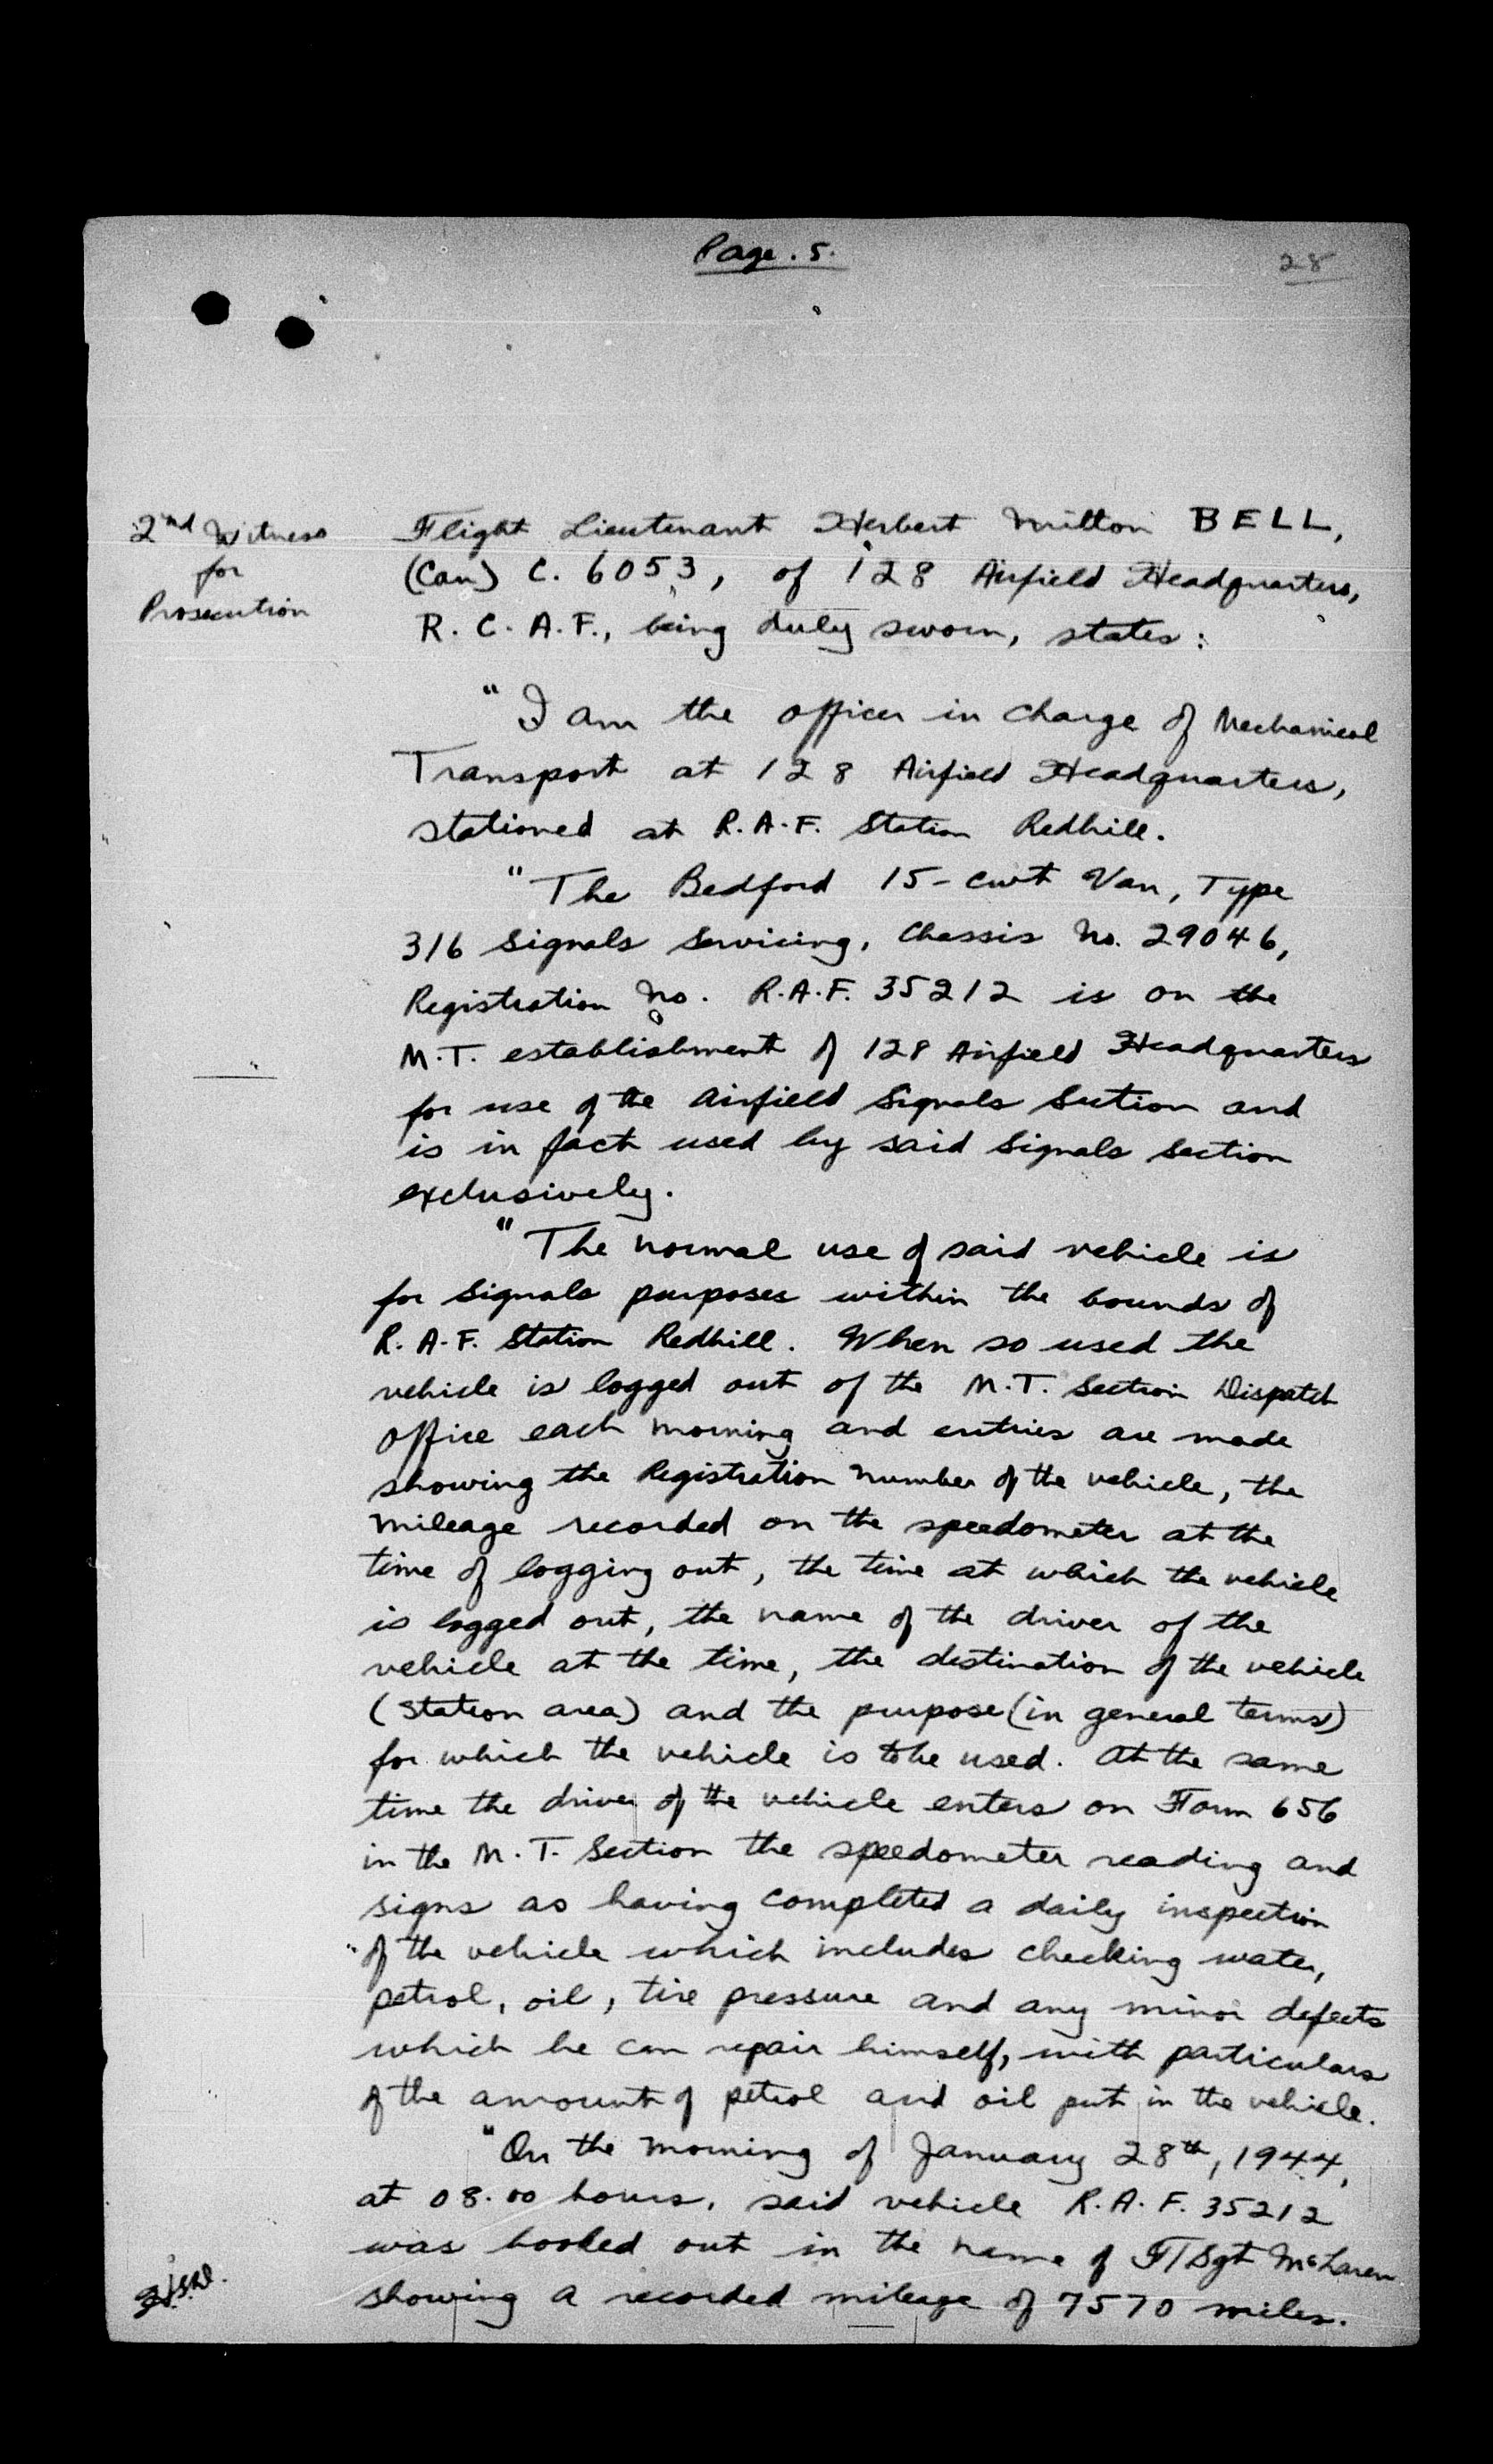 Page. 5.
28
2nd Witness
for
Prosecution
Flight Lieutenant Herbert Milton BELL,
(Can) C. 6053, of 128 Airfield Headquarters,
R. C. A. F., being duly sworn, states:
"I am the officer in charge of Mechanical
Transport at 128 Airfield Headquarters,
stationed at R.A.F. Station Redhill.
"The Bedford 15-cwt Van, Type
316 Signals Servicing, Chassis No. 29046,
Registration No. R.A.F. 35212 is on the
M.T. establishment of 128 Airfield Headquarters
for use of the Airfield Signals Section and
is in fact used by said Signals Section
exclusively.
"The normal use of said vehicle is
for Signals purposes within the bounds of
R.A.F. Station Redhill. When so used the
vehicle is logged out of the M.T. Section Dispatch
Office each morning and entries are made
showing the Registration number of the vehicle, the
mileage recorded on the speedometer at the
time of logging out, the time at which the vehicle
is logged out, the name of the driver of the
vehicle at the time, the destination of the vehicle
(Station area) and the purpose (in general terms)
for which the vehicle is to be used. At the same
time the driver of the vehicle enters on Form 656
in the M.T. Section the speedometer reading and
signs as having completed a daily inspection
"of the vehicle which includes checking water,
petrol, oil, tire pressure and any minor defects
which he can repair himself, with particulars
of the amount of petrol and oil put in the vehicle.
"On the morning of January 28th, 1944,
at 08.00 hours, said vehicle R.A.F. 35212
was booked out in the name of F/Sgt McLaren
showing a recorded mileage of 7570 miles.